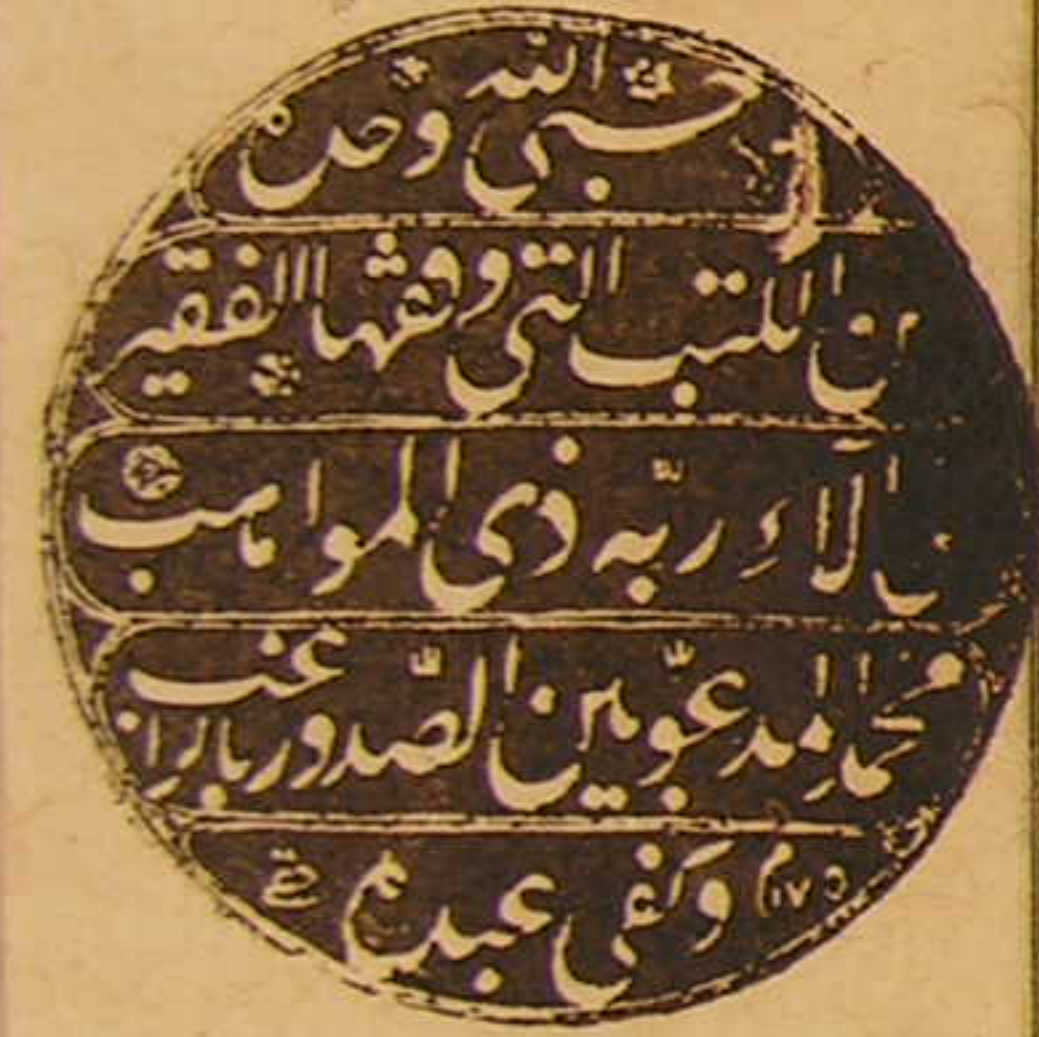 حسبي الله وحده
من الكتب التي وقفها الفقير
الى آلاء ربه ذي المواهب
محمد المدعو بين الصدور بالراغب
وكفى عبده سنة